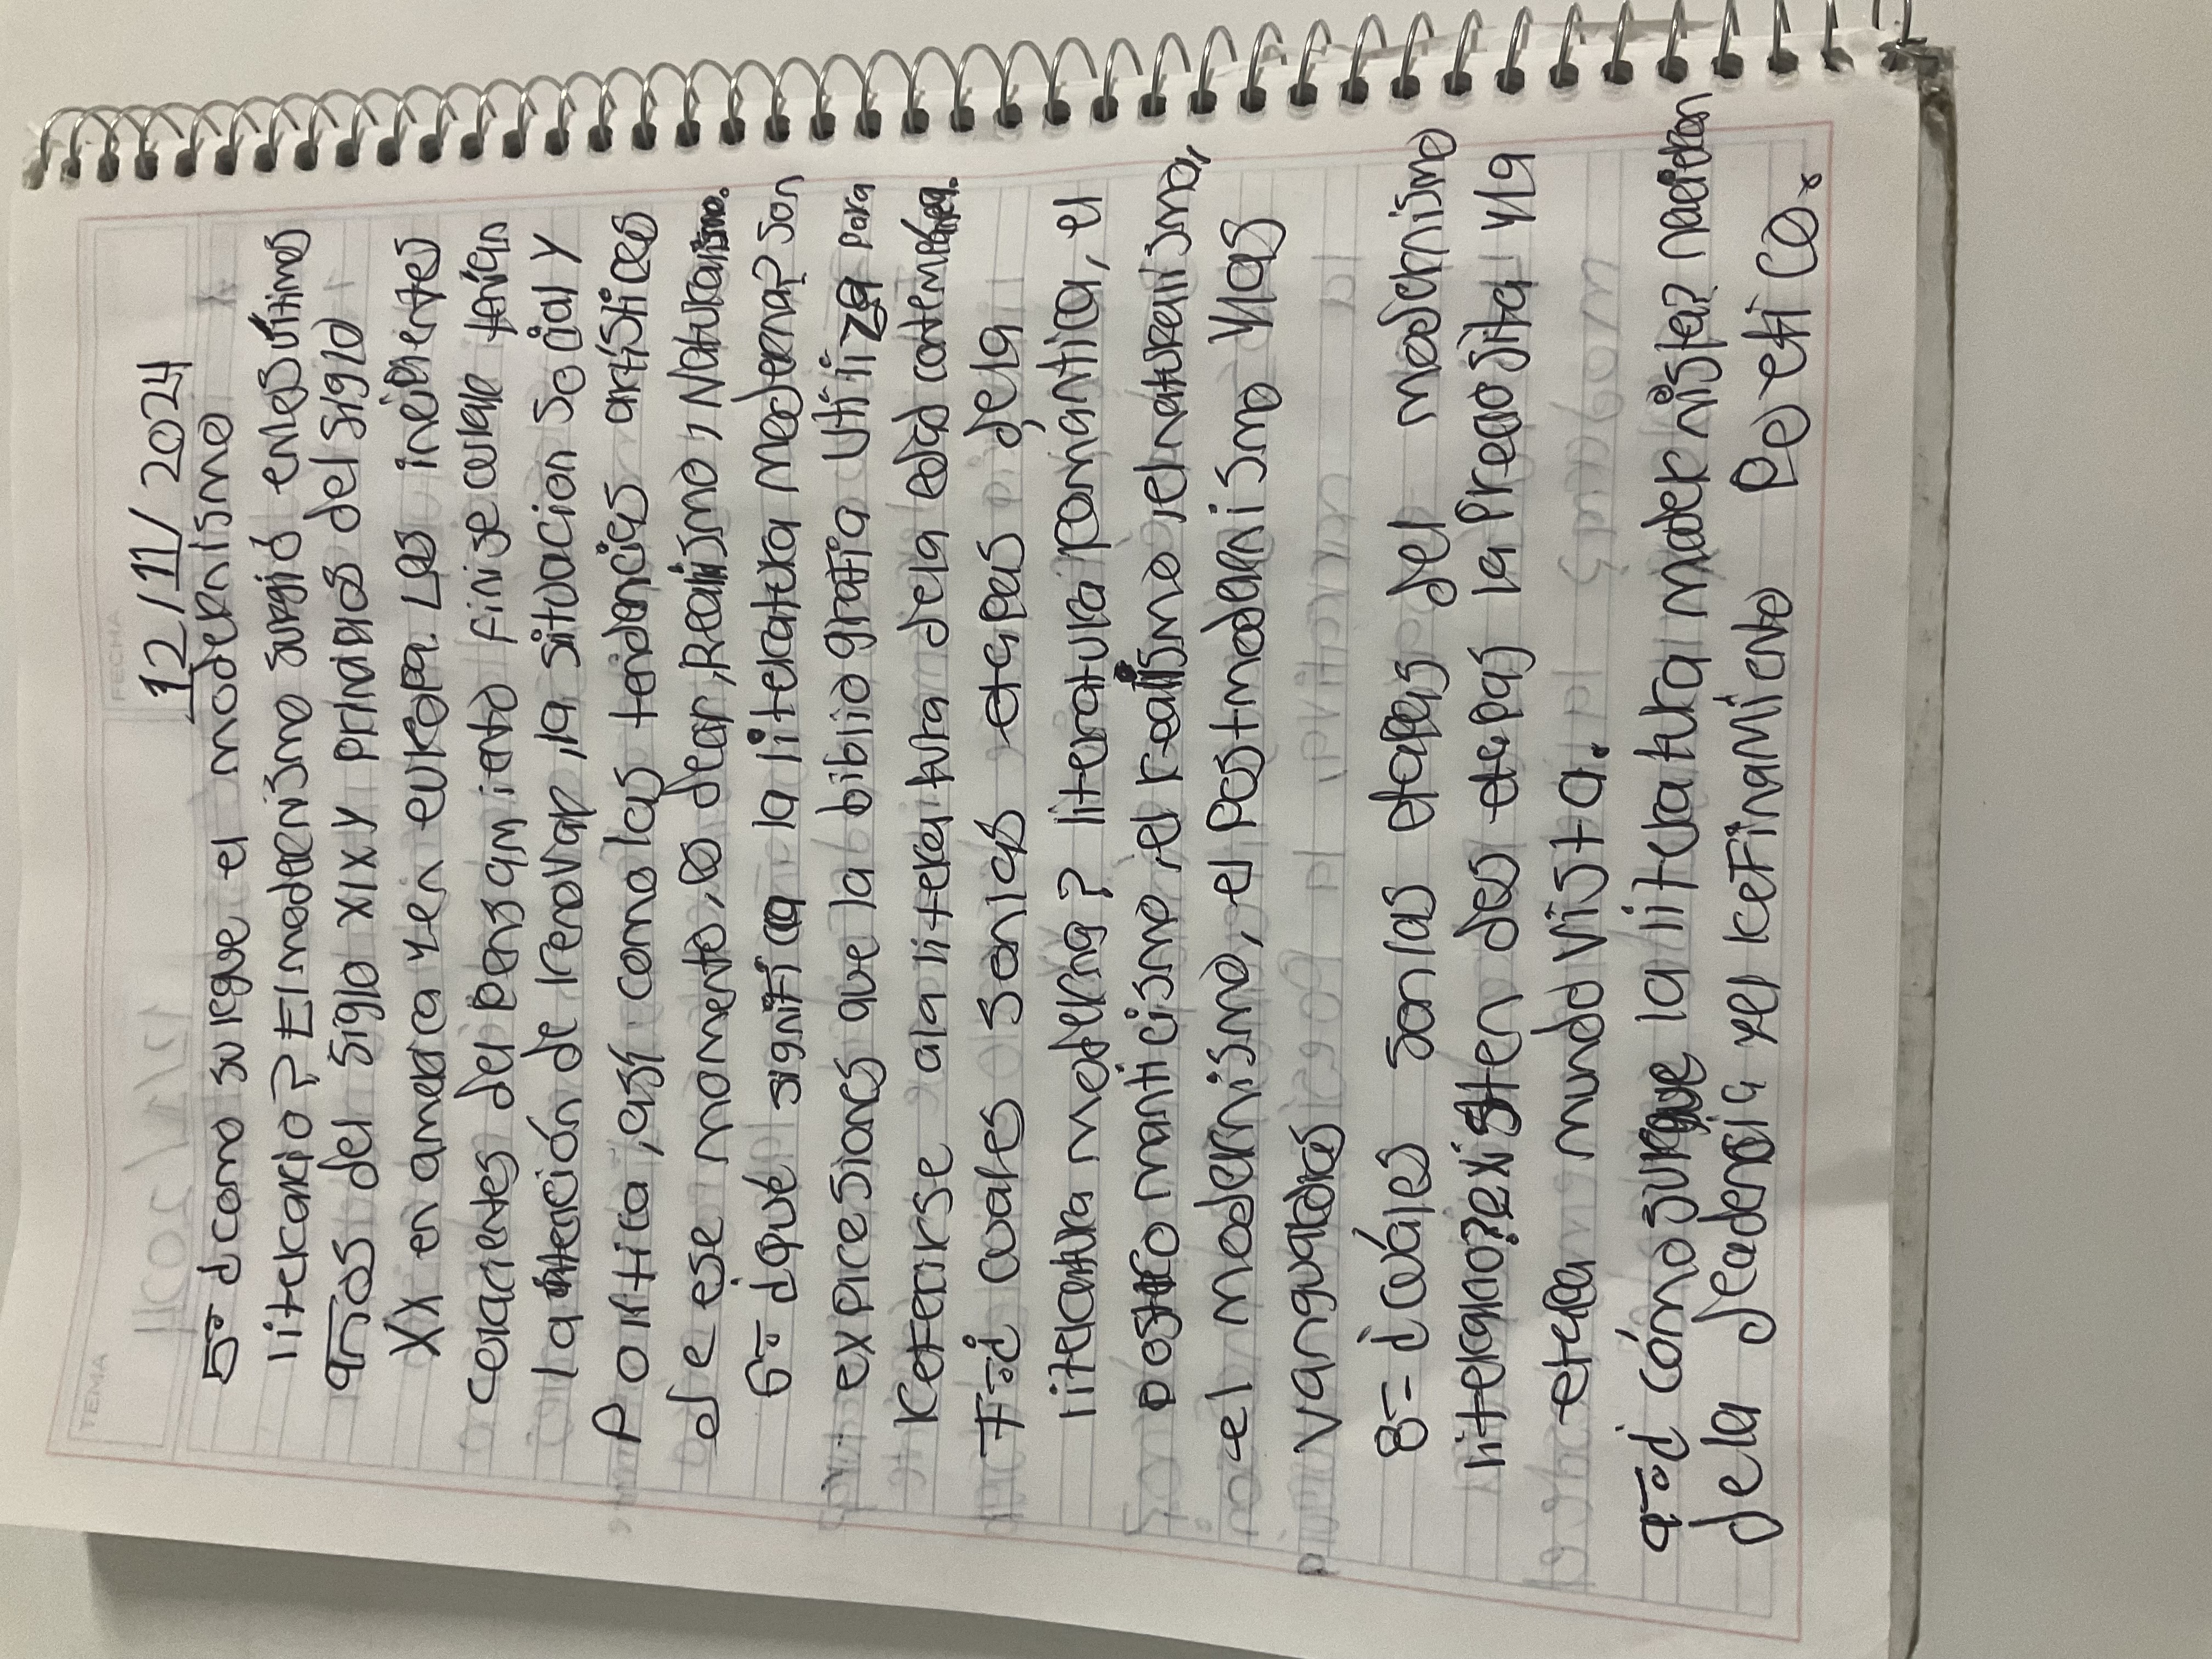 FECHA
12/11/2024
TEMA
5- ¿como surgue el modernismo
literario? El modernismo surgió enlos últimos
años del siglo XIX y primaros del siglo
XX en america y en europa. Las incipientes
corrientes del pensamiento finisecular tenían
la intención de renovar, la situacion social y
Politica, así como las tendencias artísticas
de ese momento, es decir, Realismo, Naturalismo.
6- ¿qué significa la literatura moderna? son
expresiones que la bibliografia utiliza para
referirse ala literatura dela edad contemporánea.
7-¿ cuales son las etapas dela
literatura moderna? literatura romantica, el
postromanticismo, el realismo, el naturalismo,
el modernismo, el postmodernismo y las
vanguardias
8- ¿cuáles son las etapas del modernismo
literario? existen dos etapas la preciosita y la
etapa mundovista.
9-¿ cómo surgue la literatura modernista? nacieron
dela decadensia y el refinamiento poetico.